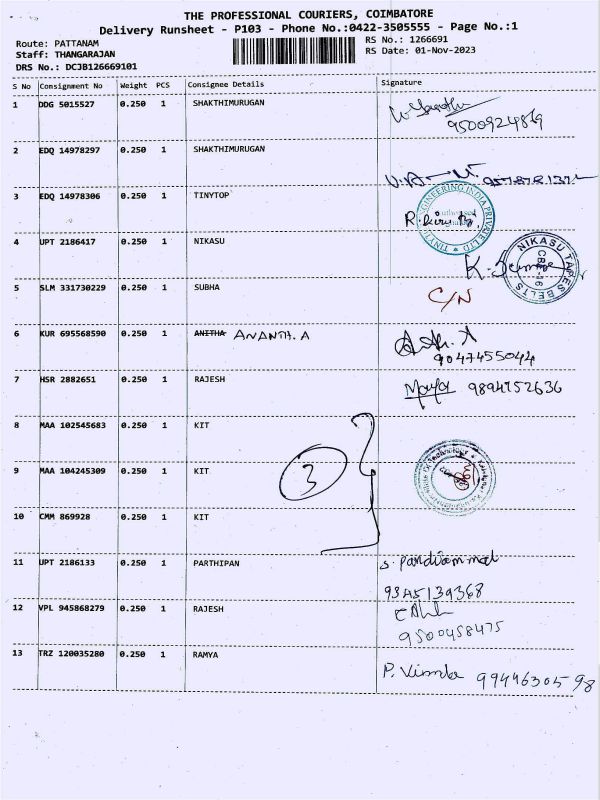 THE PROFESSIONAL COURIERS, COIMBATORE
Delivery Runsheet - P103 - Phone No.:0422-3505555 - Page No.:1
Route: PATTANAM
RS No.: 1266691
Staff: THANGARAJAN
RS Date: 01-Nov-2023
DRS No.: DCJB126669101
S No Consignment No Weight PCS Consignee Details Signature
1 DDG 5015527 0.250 1 SHAKTHIMURUGAN
9500924869
2 EDQ 14978297 0.250 1 SHAKTHIMURUGAN
3 EDQ 14978306 0.250 1 TINYTOP
ENGINEERING INDIA PRIVATE
4 UPT 2186417 0.250 1 NIKASU
NIKASU TAPES BELTS
5 SLM 331730229 0.250 1 SUBHA C/N
6 KUR 695568590 0.250 1 ANITHA ANANTH.A
9047455044
7 HSR 2882651 0.250 1 RAJESH 9894752636
8 MAA 102545683 0.250 1 KIT
9 MAA 104245309 0.250 1 KIT 3
10 CMM 869928 0.250 1 KIT
11 UPT 2186133 0.250 1 PARTHIPAN S. Pandiammal
12 VPL 945868279 0.250 1 RAJESH
9500458475
13 TRZ 120035280 0.250 1 RAMYA
9944630598